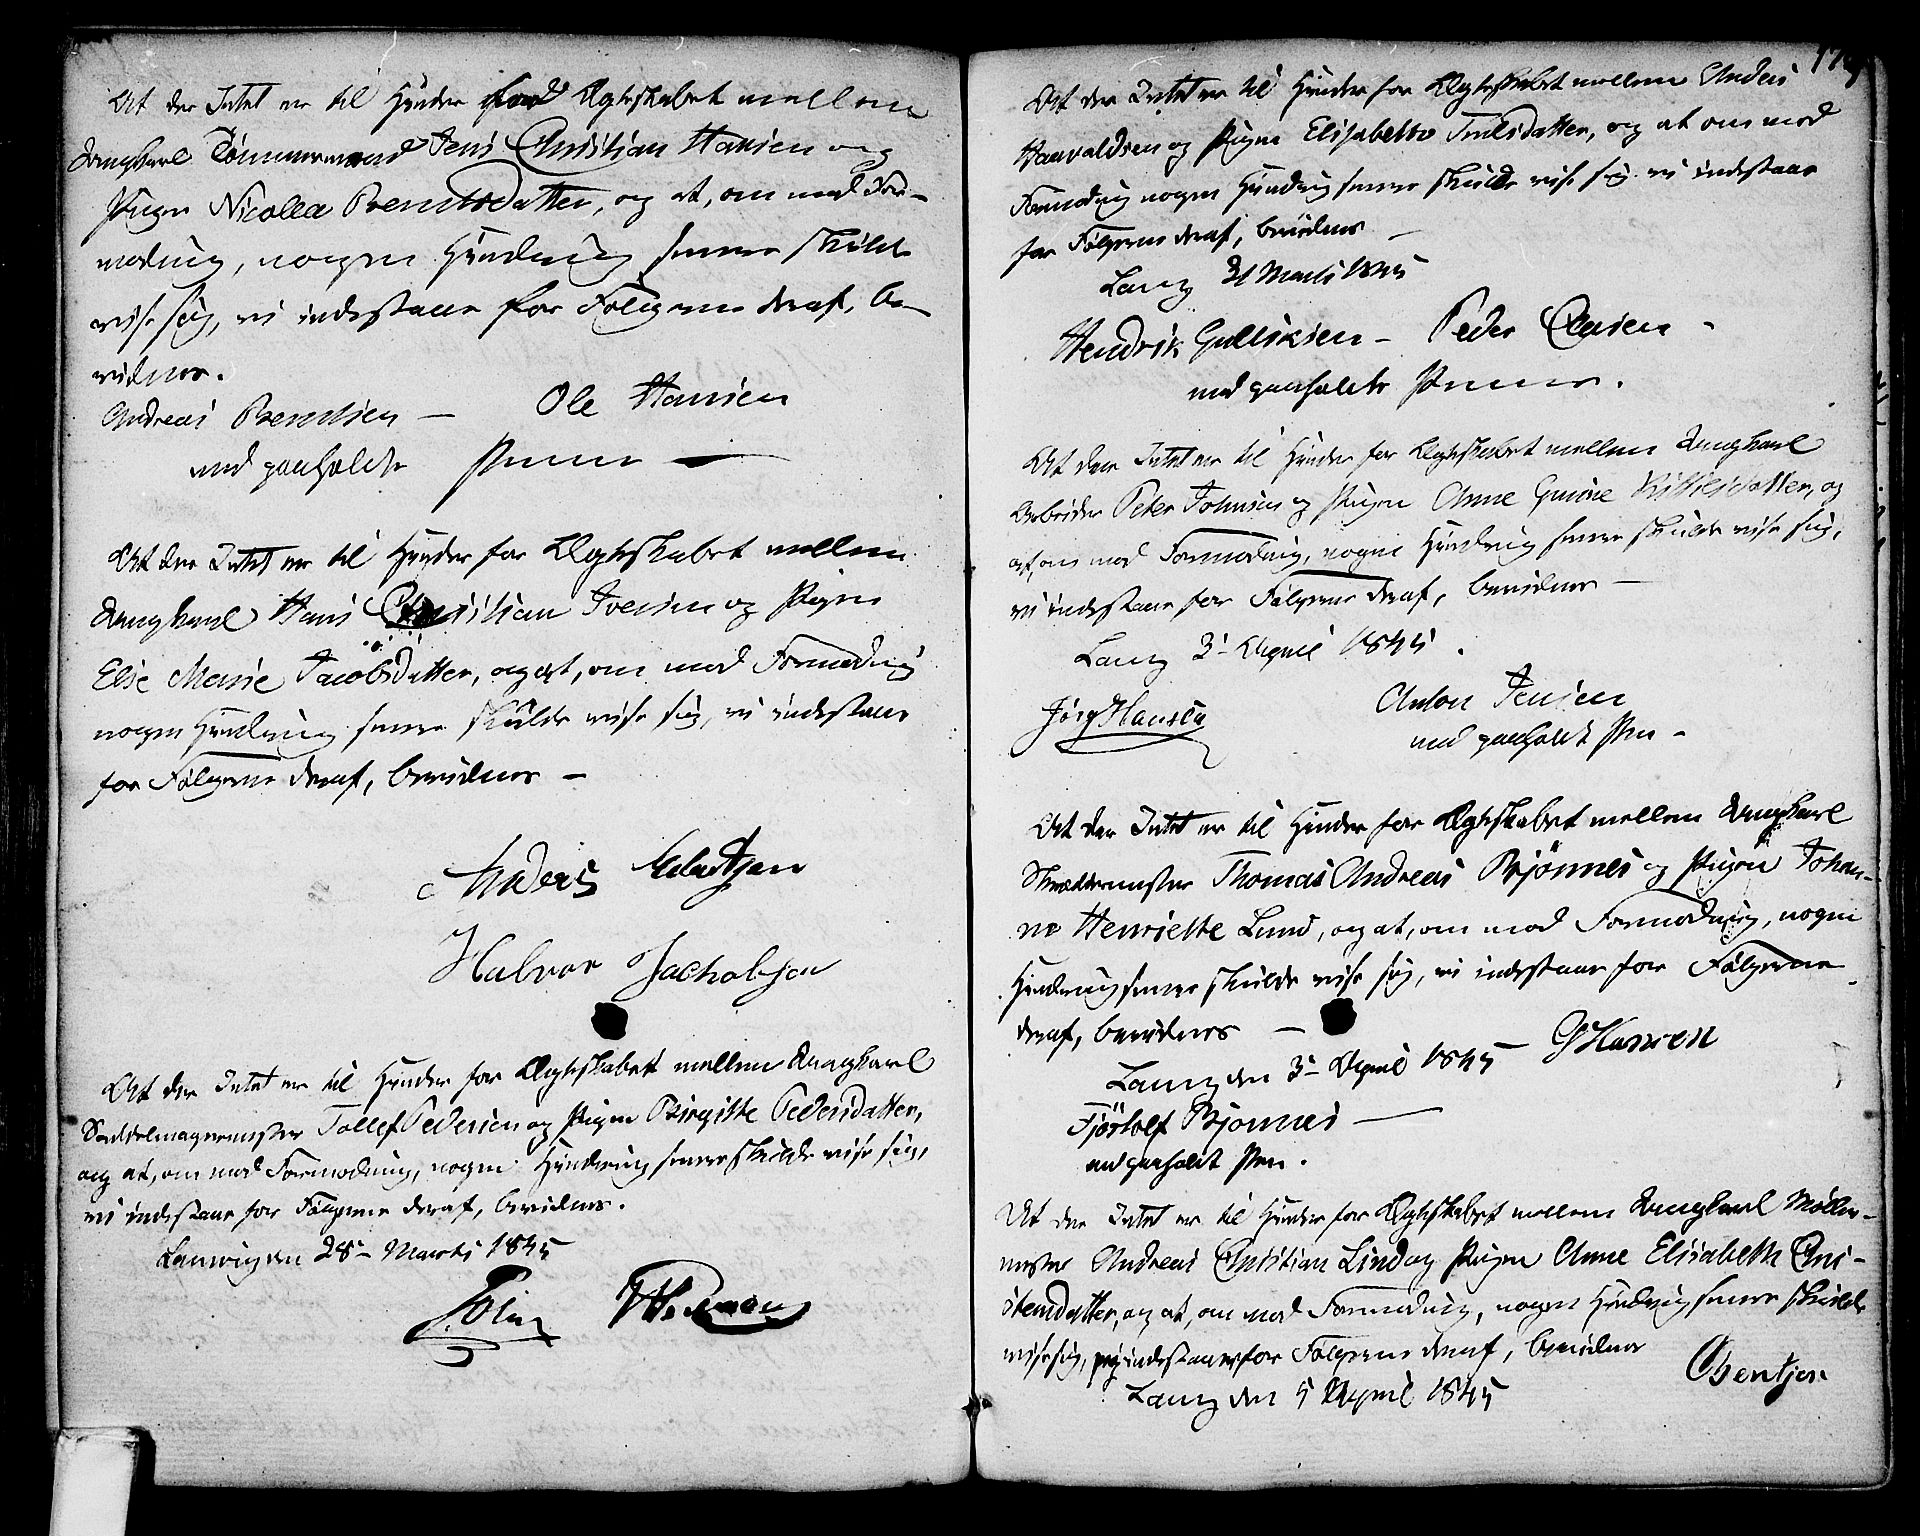 At der Intet er til Hinder for Ægteskabet mellem
Ungkarl Tømmermand Jens Christian Hansen og
Pigen Nicolea Berntsdatter, og at, om mod For-
modning, nogen Hindring senere skulde
vise sig, vi indestaae for Følgerne deraf, be-
vidnes.
Andreas Berntsen — Ole Hansen
med paaholdte Penne —
At der Intet er til Hinder for Ægteskabet mellem
Ungkarl Hans Christian Iversen og Pigen
Else Marie Jacobsdatter, og at, om mod Formodning
nogen Hindring senere skulde vise sig, vi indestaae
for Følgerne deraf, bevidnes —
Anders
Halvor Jachobsen
At der Intet er til Hinder for Ægteskabet mellem Ungkarl
Sadelmagermester Tollef Pedersen og Pigen Birgitte Pedersdatter,
og at, om mod Formodning, nogen Hindring senere skulde vise sig,
vi indestaae for Følgerne deraf, bevidnes.
Laurvig den 28 Marts 1845
179
At der Intet er til Hinder for Ægteskabet mellem Anders
Haavaldsen og Pigen Elisabeth Truulsdatter, og at om mod
Formodning nogen Hindring senere skulde vise sig vi indestaae
for Følgerne deraf, bevidnes —
Laurv 31 Marts 1845
Hendrik Gulliksen — Peder Olausen —
med paaholdte Penne.
At der Intet er til Hinder for Ægteskabet mellem Ungkarl
Arbeider Peter Johnsen og Pigen Anne Gurine Kittilsdatter, og
at, om mod Formodning, nogen Hindring senere skulde vise sig,
vi indestaae for Følgerne deraf, bevidnes —
Laurv 3 April 1845.
Jørg Hansen Anton Jensen
med paaholdt Pen —
At der Intet er til Hinder for Ægteskabet mellem Ungkarl
Skræddermester Thomas Andreas Bjønnes og Pigen Johan-
ne Henriette Lund, og at, om mod Formodning, nogen
Hindring senere skulde vise sig, vi indestaae for Følgerne
deraf, bevidnes —
Laurv den 3 April 1845 Hansen
Fjøstolf Bjønnes —
med paaholdt Pen.
At der Intet er til Hinder for Ægteskabet mellem Ungkarl Møller-
mester Andreas Christian Lind og Pigen Anne Elisabeth Chri-
stensdatter, og at, om mod Formodning, nogen Hindring senere skulde
vise sig, indestaaes for Følgerne deraf, bevidnes
Laurv den 5 April 1845 Bentsen